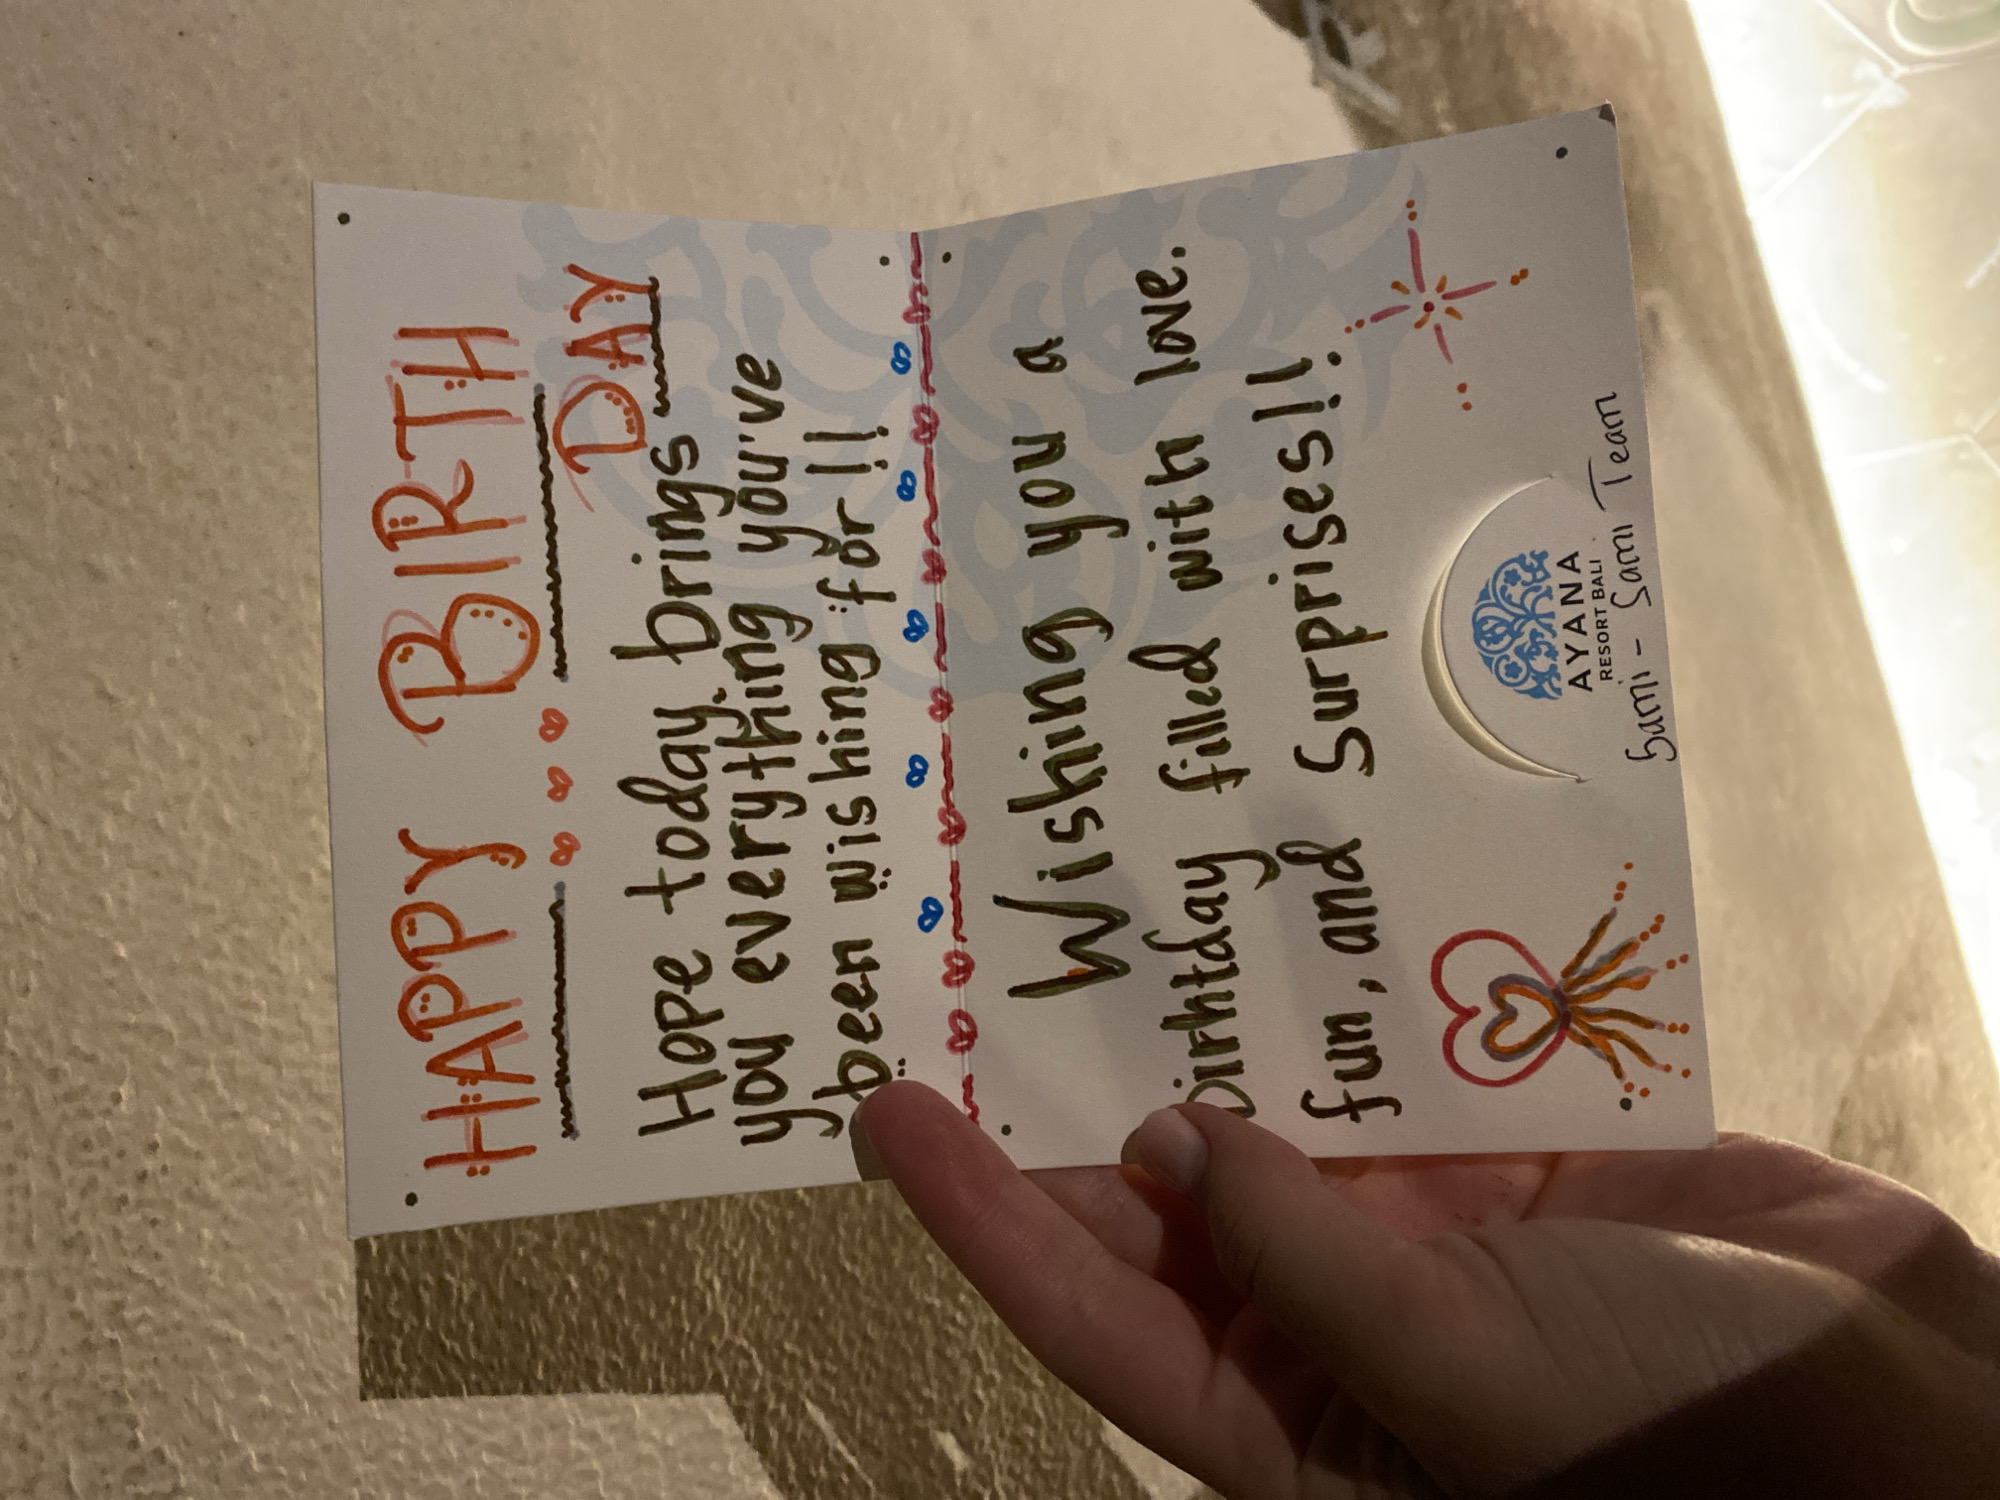 HAPPY BIRTH
DAY
Hope today brings
you everything you've
been wishing for!!
Wishing you a
birhtday filled with love.
fun, and Surprises!!.
AYANA
RESORT BALI
Sami - Sami Team